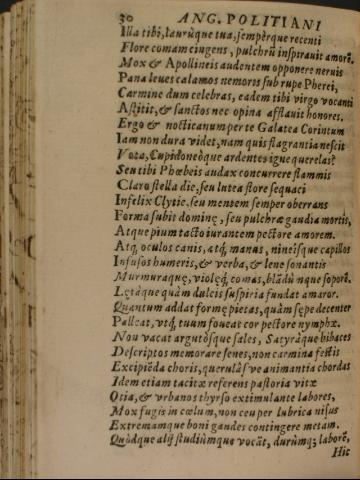 30 ANG. POLITIANI
Illa tibi, lauruque tua, sempèrque recenti
Flore comam cingens, pulchrũ inspirauit amorẽ.
Mox & Apollineis audentem opponere neruis
Pana leues calamos nemoris sub rupe Pherei,
Carmine dum celebras, eadem tibi virgo vocanti
Astitit, & sanctos nec opina afflauit honores.
Ergo & nocticanum per te Galatea Corintum
Iam non dura videt, nam quis flagrantia nescit
Vota, Cupidoneòque ardentes igne querelas?
Seu tibi Phœbeis audax concurrere flammis
Claro stella die, seu lutea flore sequaci
Infelix Clytie, seu mentem semper oberrans
Forma subit dominę, seu pulchræ gaudia mortis,
Atque pium tacto iurantem pectore amorem.
Atq, oculos canis, atq, manus, niueisque capillos
Infusos humeris, & verba, & lene sonantis
Murmuraque, violęq, comas, blãdũ nque soporẽ.
Lętáque quàm dulcis suspiria fundat amaror.
Quantum addat formę pietas, quàm sępe decenter
Palleat, vtq, tuum foueat cor pectore nymphæ.
Nou vacat argutósque sales, Satyráque bibaces
Descriptos memorare senes, non carmina festis
Excipiẽda choris, querulás ve animantia chordas
Idem etiam tacitæ referens pastoria vitæ
Otia, & vrbanos thyrso extimulante labores,
Mox fugis in cœlum, non ceu per lubrica nisus
Extremamque boni gandes contingere metam.
Quòdque alij studiúmque vocãt, durúmq; laborẽ,
Hic